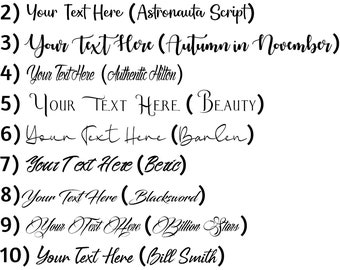 2) Your Text Here (Astronauta Script)
3) Your Text Here (Autumn in November)
4) Your Text Here (Authentic Hilton)
5) Your Text Here (Beauty)
6) Your Text Here (Barlen)
7) Your Text Here (Beric)
8) Your Text Here (Blacksword)
9) Your Text Here (Billion Stars)
10) Your Text Here (Bill Smith)